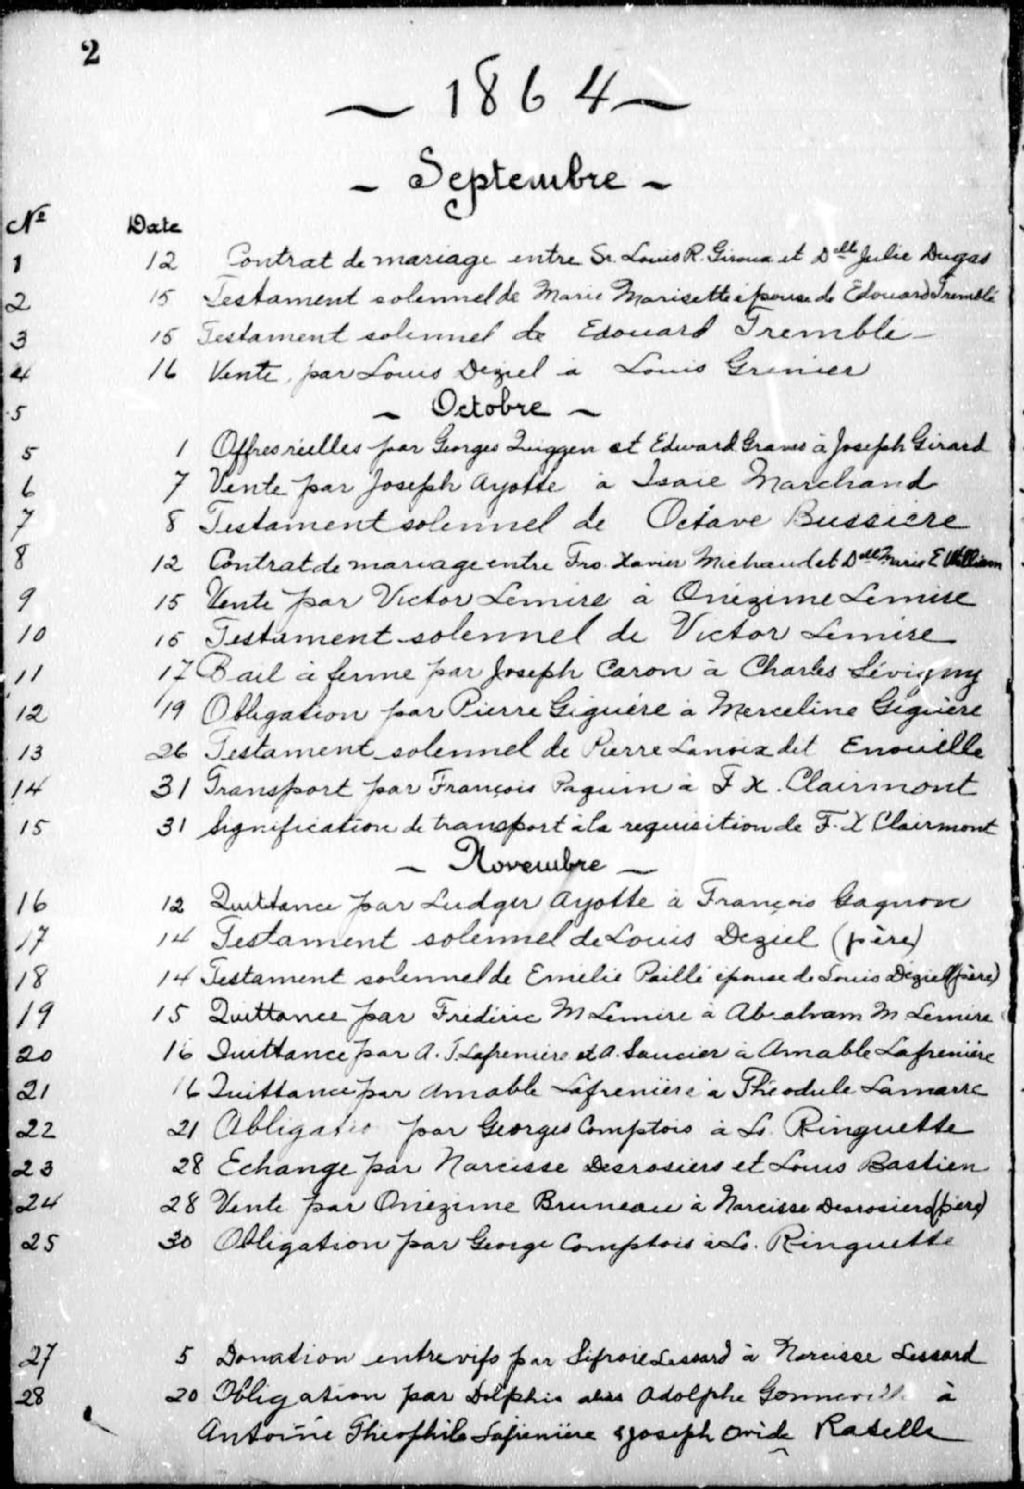 2
~ 1864 ~
- Septembre -
No Date
1 12 Contrat de mariage entre Sr. Louis R. Giroux et Dlle Julie Dugas
2 15 Testament solennel de Marie Morisette épouse de Edouard Tremblé
3 15 Testament solennel de Edouard Tremblé -
4 16 Vente, par Louis Deziel à Louis Grinier
5 - Octobre -
5 1 Offres réelles par Georges et Edward Graves à Joseph Girard
6 7 Vente par Joseph Ayotte à Isaie Marchand
7 8 Testament solennel de Octave Bussiere
8 12 Contrat de mariage entre Frs. Xavier Michaud et Dlle Marie E William
9 15 Vente par Victor Lemire à Onézime Lemire
10 15 Testament solennel de Victor Lemire
11 17 Bail à ferme par Joseph Caron à Charles Sévigny
12 19 Obligation par Pierre Giguère à Merceline Giguère
13 26 Testament solennel de Pierre Lanoix dit Enouille
14 31 Transport par François Paquin à F X. Clairmont
15 31 Signification de transport à la requisition de F. X Clairmont
- Novembre -
16 12 Quittance par Ludger Ayotte à François Gagnon
17 14 Testament solennel de Louis Deziel (père)
18 14 Testament solennel de Emelie Paillé épouse de Louis Déziel (père)
19 15 Quittance par Fréderic M Lemire à Abraham M Lemire
20 16 Quittance par A. T. Lafreniere et A. Saucier à Amable Lafrenière
21 16 Quittance par Amable Lafrenière à Théodule Lamarre
22 21 Obligatio par Georges Comptois à Ls. Ringuette
23 28 Echange par Narcisse Desrosiers et Louis Bastien
24 28 Vente par Onézime Bruneau à Narcisse Desrosiers (père)
25 30 Obligation par George Comptois à Ls. Ringuette
27 5 Donation entrevifs par Sifroie Lessard à Narcisse Lessard
28 20 Obligation par Dolphis alias Adolphe Gonneville à
Antoine Théophile Lafrenière & Joseph Ovide Ratelle